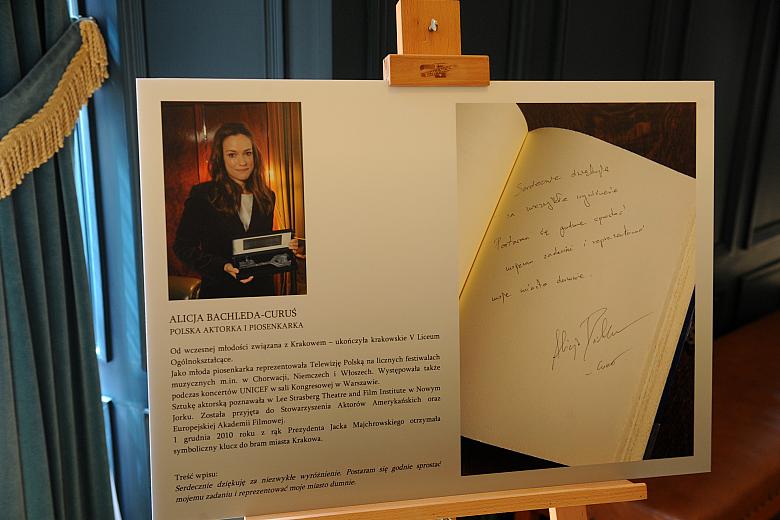 ALICJA BACHLEDA-CURUŚ
POLSKA AKTORKA I PIOSENKARKA
Od wczesnej młodości związana z Krakowem – ukończyła krakowskie V Liceum
Ogólnokształcące.
Jako młoda piosenkarka reprezentowała Telewizję Polską na licznych festiwalach
muzycznych m.in. w Chorwacji, Niemczech i Włoszech. Występowała także
podczas koncertów UNICEF w sali Kongresowej w Warszawie.
Sztukę aktorską poznawała w Lee Strasberg Theatre and Film Institute w Nowym
Jorku. Została przyjęta do Stowarzyszenia Aktorów Amerykańskich oraz
Europejskiej Akademii Filmowej.
1 grudnia 2010 roku z rąk Prezydenta Jacka Majchrowskiego otrzymała
symboliczny klucz do bram miasta Krakowa.
Treść wpisu:
Serdecznie dziękuję za niezwykłe wyróżnienie. Postaram się godnie sprostać
mojemu zadaniu i reprezentować moje miasto dumnie.
Serdecznie dziękuję
za niezwykłe wyróżnienie
Postaram się godnie sprostać
mojemu zadaniu i reprezentować
moje miasto dumnie.
Alicja